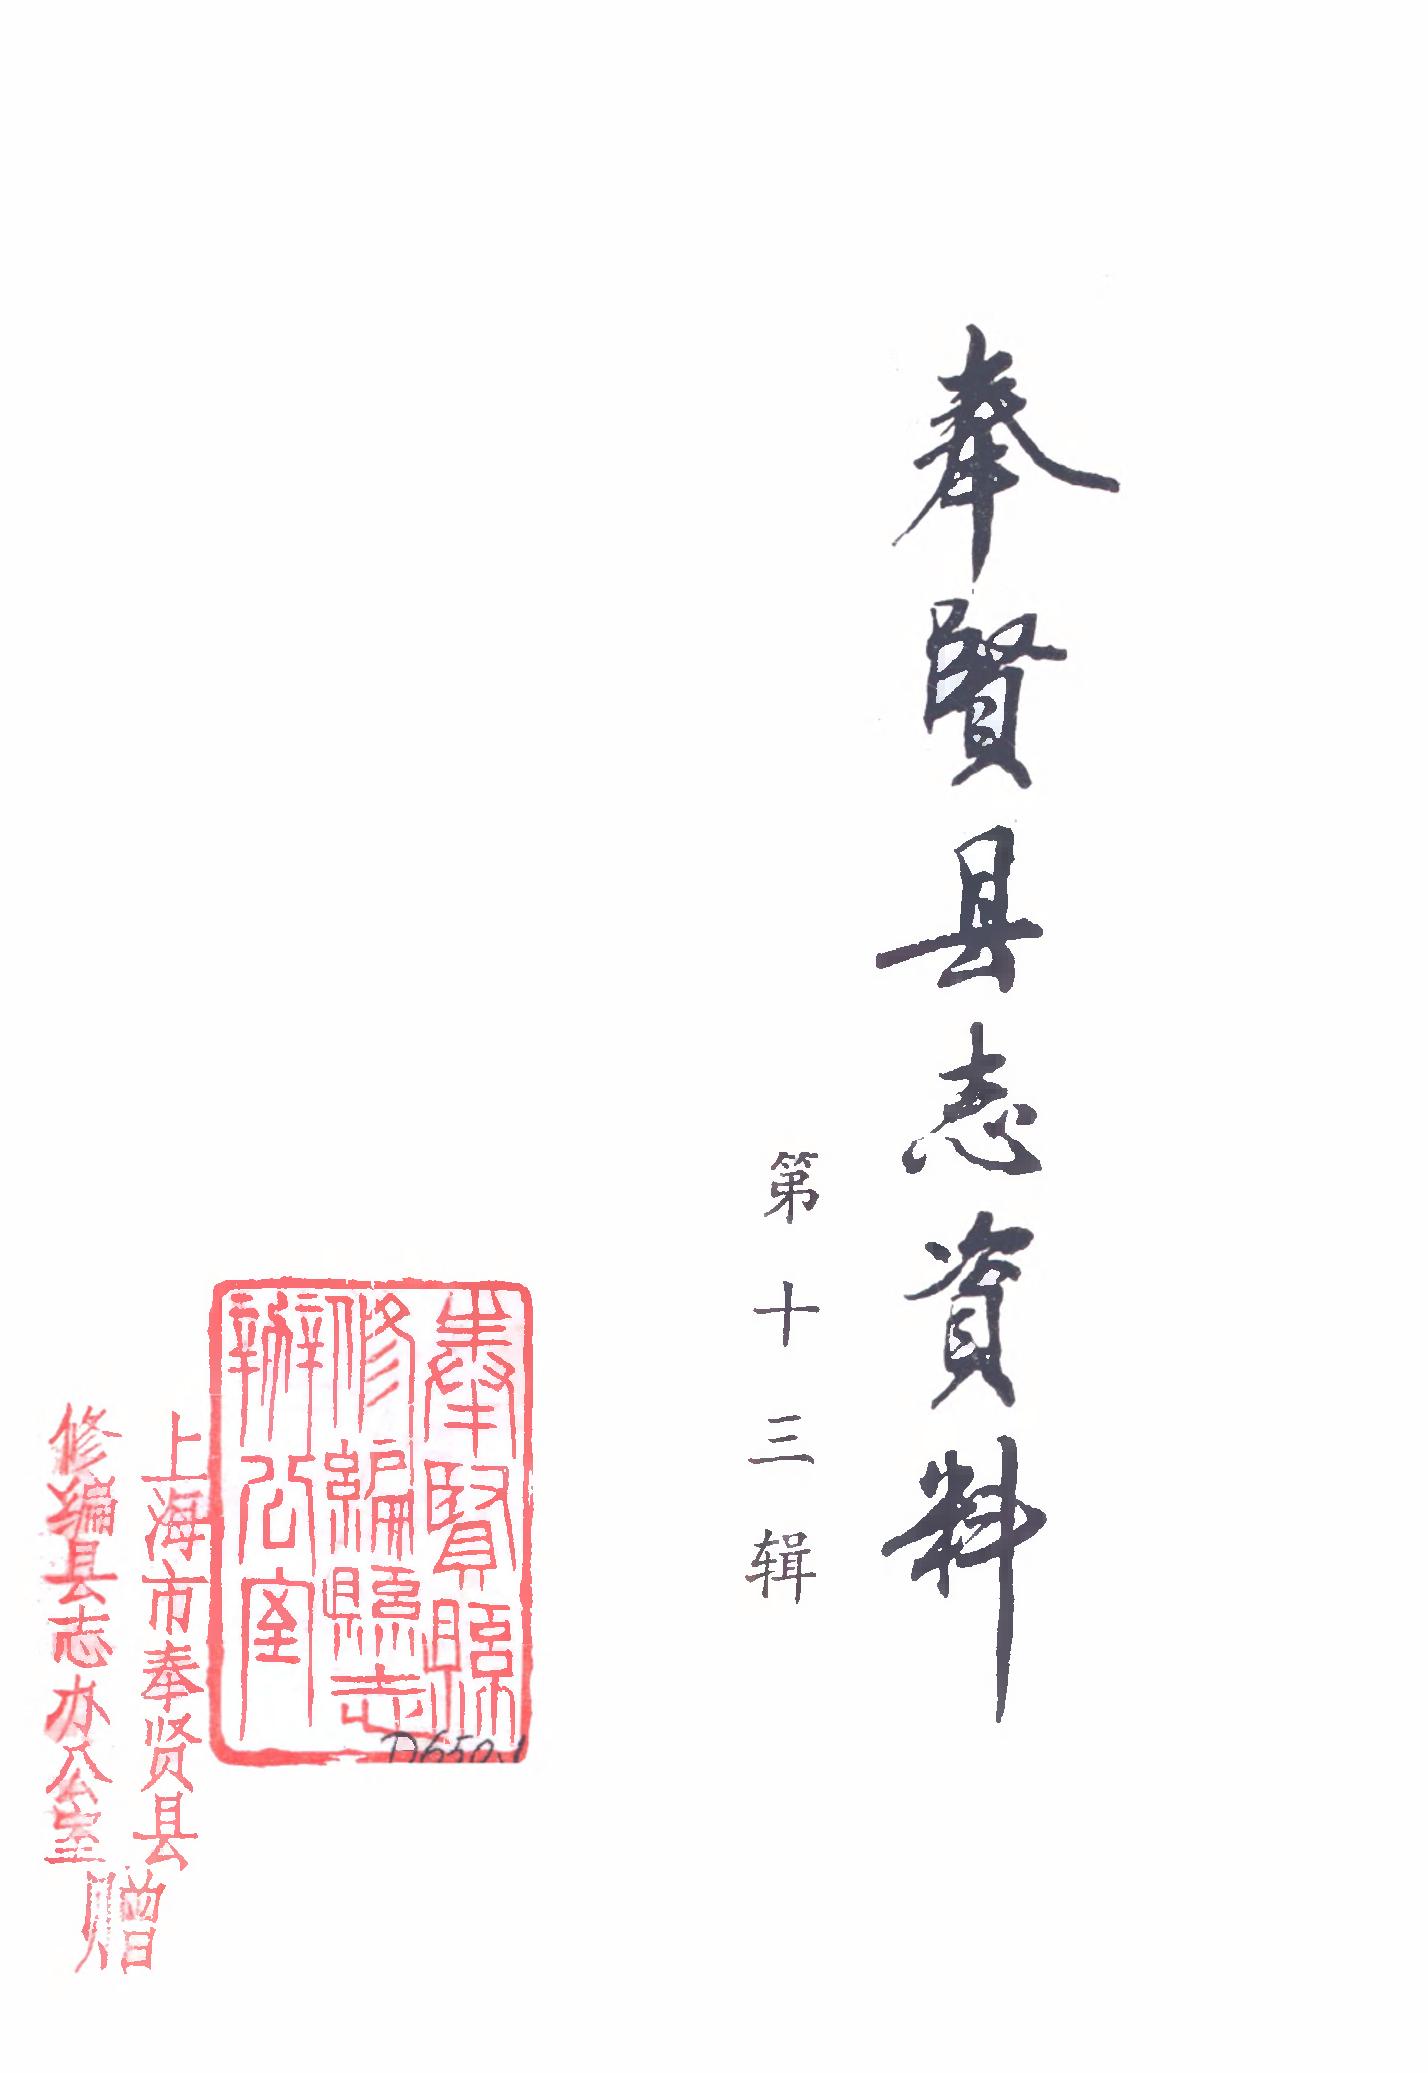 奉賢县志資料
第十三辑
奉賢縣
修編縣志
辦公室
D650.1
上海市奉贤县
修编县志办公室
赠